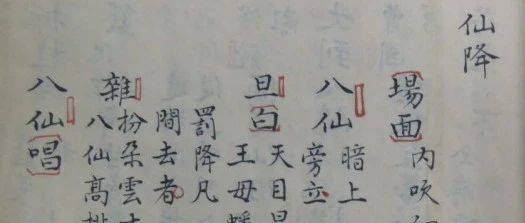 仙降
場面 內吹
八仙 暗上旁立
旦白 天目
王母蟠
罰降凡
間去者
雜扮朵雲
八仙高
八仙唱